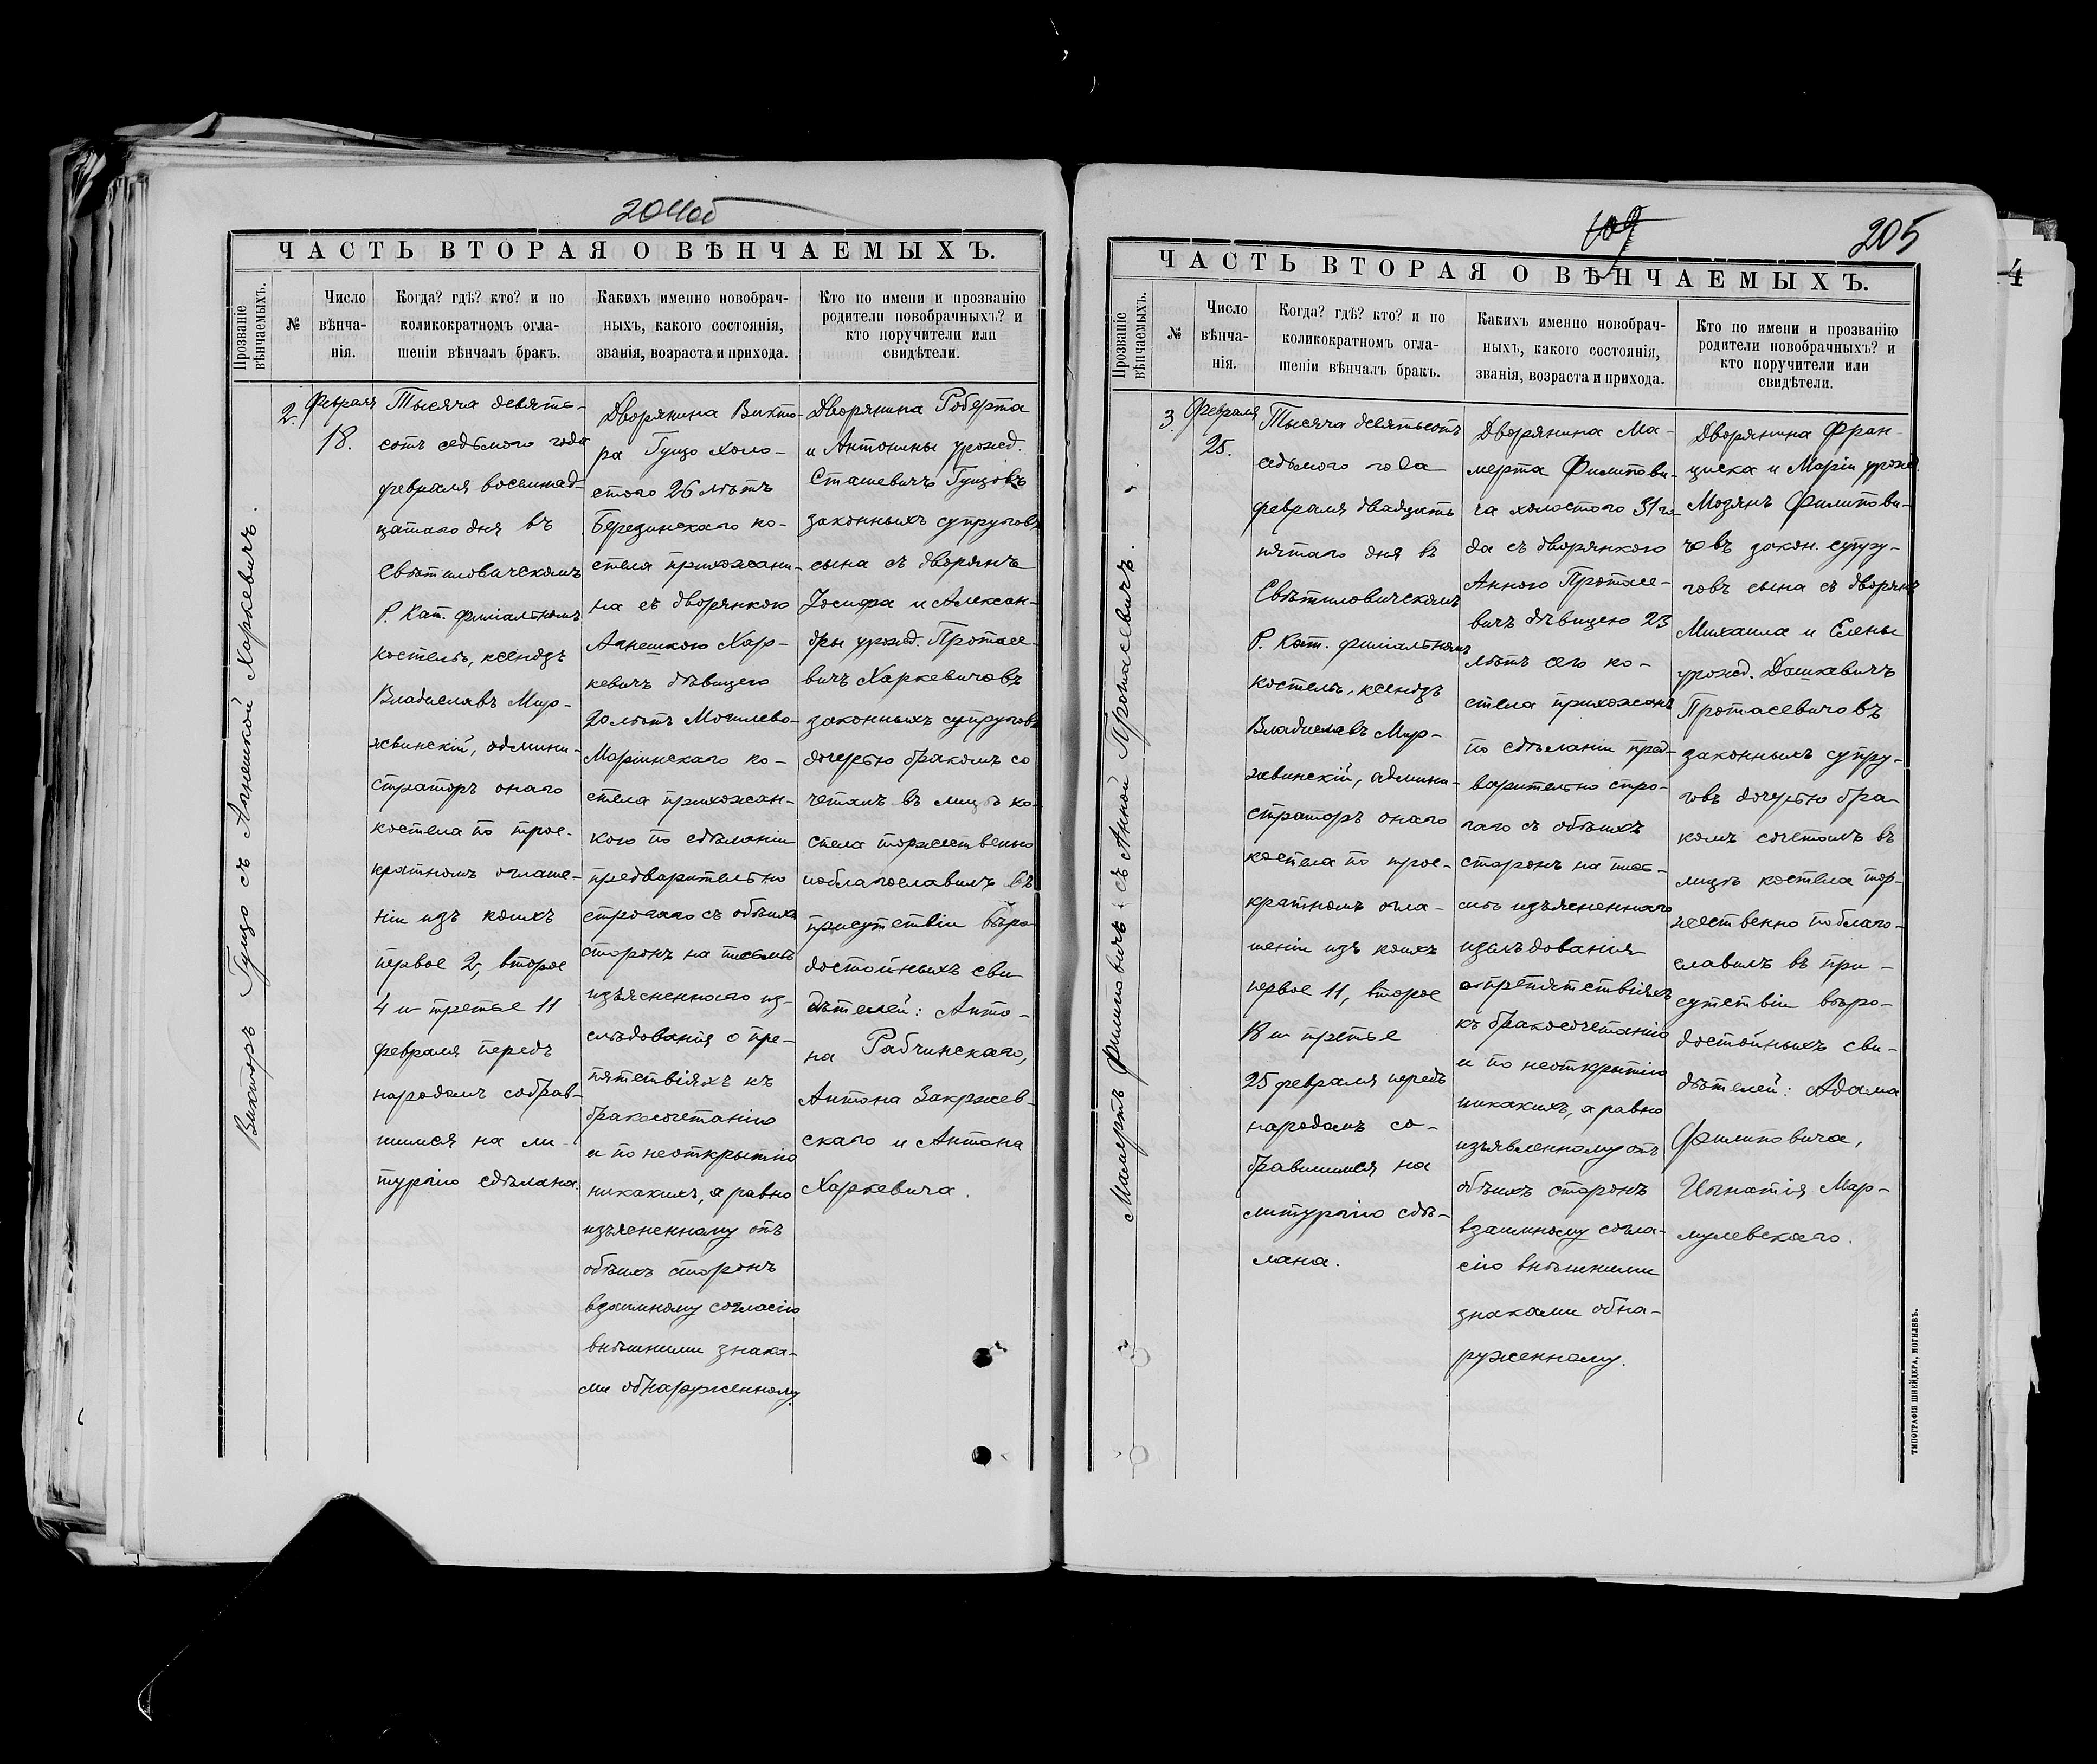 204об
ЧАСТЬ ВТОРАЯ О ВѢНЧАЕМЫХЪ.
Прозваніе
вѣнчаемыхъ.
№
Число
вѣнча-
нія.
Когда? гдѣ? кто? и по
коликократномъ огла-
шеніи вѣнчалъ бракъ.
Какихъ именно новобрач-
ныхъ, какого состоянія,
званія, возраста и прихода.
Кто по имени и прозванію
родители новобрачныхъ? и
кто поручители или
свидѣтели.
Викторъ Гуцо съ Агнешкой Харкевичъ.
2.
Февраля
18.
Тысяча девять-
сотъ седьмого года
февраля восемнад-
цатаго дня въ
Свѣтиловическомъ
Р. Кат. филіальномъ
костелѣ, ксендзъ
Владиславъ Мир-
жвинскій, админи-
страторъ онаго
костела по трое-
кратномъ оглаше-
ніи изъ коихъ
первое 2, второе
4 и третье 11
февраля передъ
народомъ собрав-
шимся на ли-
тургію сдѣлана.
Дворянина Викто-
ра Гуцо холо-
стого 26 лѣтъ
Березинскаго ко-
стела прихожани-
на съ дворянкою
Агнешкою Хар-
кевичъ дѣвицею
20 лѣтъ Могилево-
Маріинскаго ко-
стела прихожан-
кою по сдѣланіи
предварительно
строгаго съ обѣихъ
сторонъ на письмѣ
изъясненнаго из-
слѣдованія о пре-
пятствіяхъ къ
бракосочетанію
и по неоткрытію
никакихъ, а равно
изъясненному отъ
обѣихъ сторонъ
взаимному согласію
внѣшними знака-
ми обнаруженному.
Дворянина Роберта
и Антонины урожд.
Сташевичъ Гуцовъ
законныхъ супруговъ
сына съ дворянъ
Іосифа и Алексан-
дры урожд. Протасе-
вичъ Харкевичовъ
законныхъ супруговъ
дочерью бракомъ со
четалъ въ лицѣ ко-
стела торжественно
поблагославилъ въ
присутствіи вѣро-
достойныхъ сви-
дѣтелей: Анто-
на Рабчинскаго,
Антона Закржев-
скаго и Антона
Харкевича.
205
4
ЧАСТЬ ВТОРАЯ О ВѢНЧАЕМЫХЪ.
Прозваніе
вѣнчаемыхъ.
№
Число
вѣнча-
нія.
Когда? гдѣ? кто? и по
коликократномъ огла-
шеніи вѣнчалъ бракъ.
Какихъ именно новобрач-
ныхъ, какого состоянія,
званія, возраста и прихода.
Кто по имени и прозванію
родители новобрачныхъ? и
кто поручители или
свидѣтели.
Мамертъ Филиповичъ съ Анной Протасевичъ.
3.
Февраля
25.
Тысяча девятьсотъ
седьмого года
февраля двадцать
пятаго дня въ
Свѣтиловическомъ
Р. Кат. филіальномъ
костелѣ, ксендзъ
Владиславъ Мир-
жвинскій, админи-
страторъ онаго
костела по трое-
кратномъ огла-
шеніи изъ коихъ
первое 11, второе
18 и третье
25 февраля передъ
народомъ со-
бравшимся на
литургію сдѣ-
лана.
Дворянина Ма-
мерта Филипови-
ча холостого 31 го-
да съ дворянкою
Анною Протасе-
вичъ дѣвицею 23
лѣтъ сего ко-
стела прихожанъ
по сдѣланіи пред-
варительно стро-
гаго съ обѣихъ
сторонъ на пись-
мѣ изъясненнаго
изслѣдованія
о препятствіяхъ
къ бракосочетанію
и по неоткрытію
никакихъ, а равно
изъявленному отъ
обѣихъ сторонъ
взаимному согла-
сію внѣшними
знаками обна-
руженному.
Дворянина Фран-
циска и Маріи урожд.
Мозянъ Филипови-
човъ закон. супру-
говъ сына съ дворянъ
Михаила и Елены
урожд. Дашкевичъ
Протасевичовъ
законныхъ супру-
говъ дочерью бра-
комъ сочеталъ въ
лицѣ костела тор-
жественно поблаго-
славилъ въ при-
сутствіи вѣро-
достойныхъ сви-
дѣтелей: Адама
Филиповича,
Игнатія Мар-
мулевскаго.
ТИПОГРАФІЯ ШНЕЙДЕРА, МОГИЛЕВЪ.